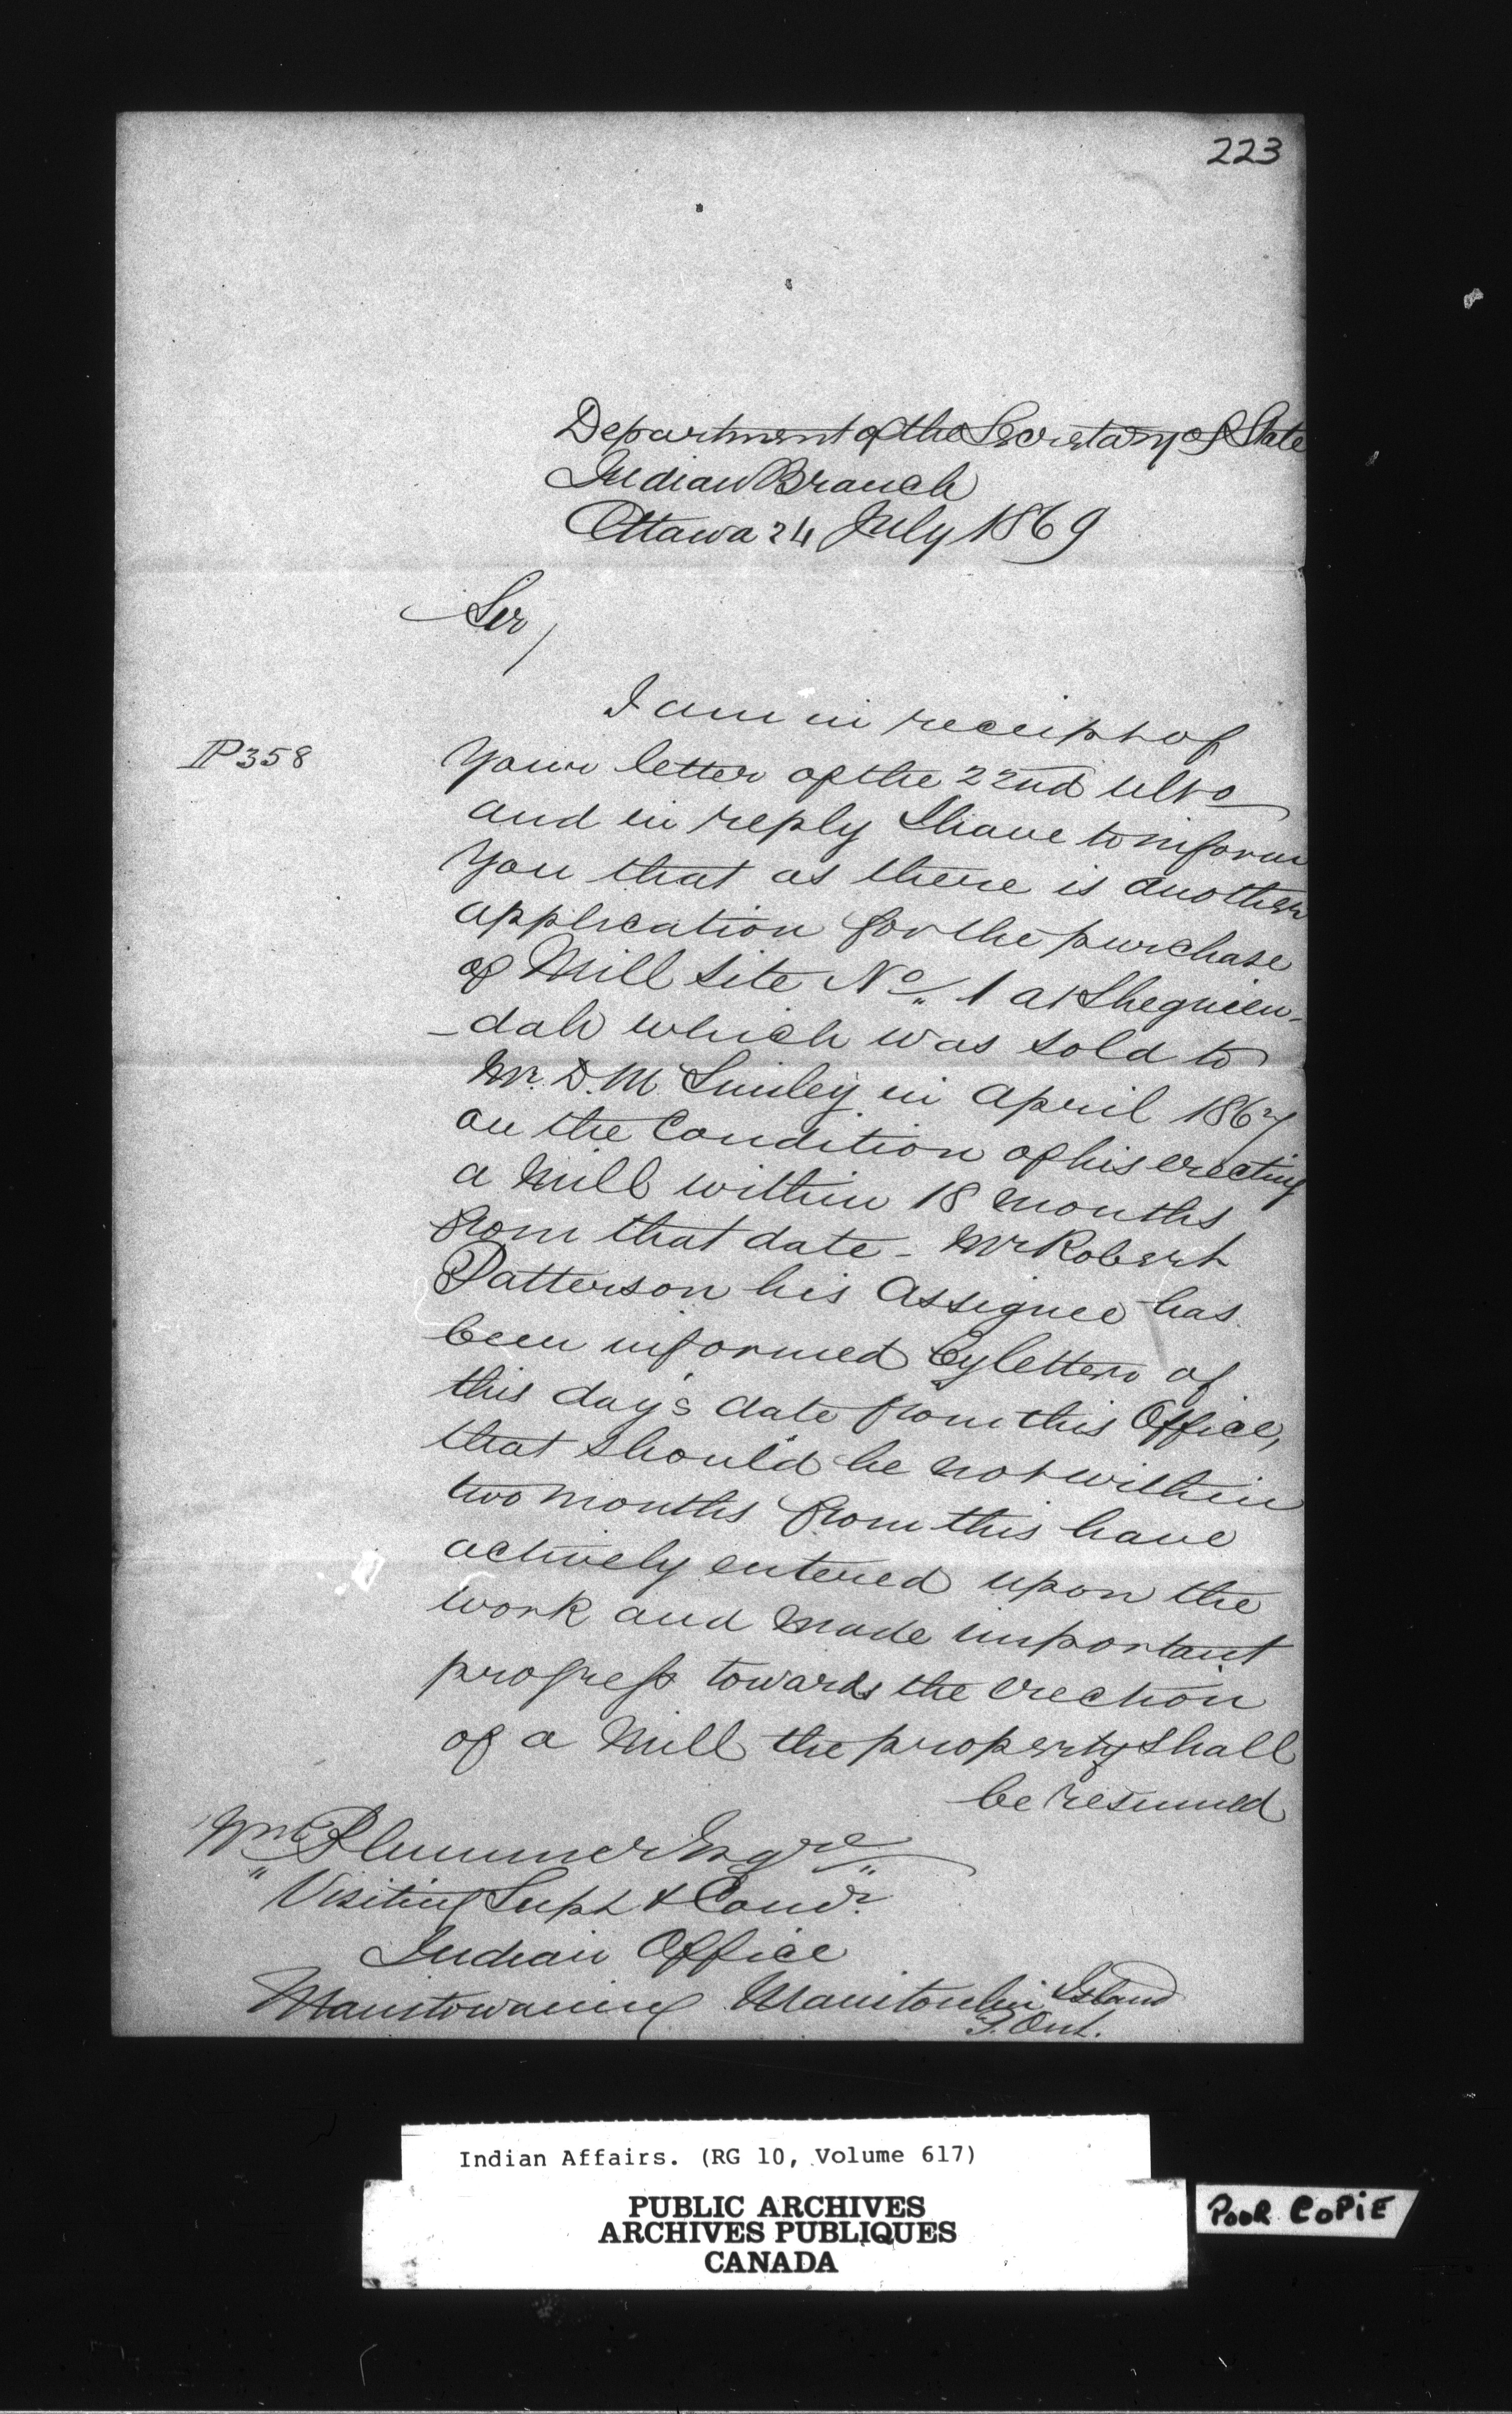 223
Department of the Secretary of State
Indian Branch
Ottawa 24 July 1869
Sir,
I am in receipt of
P358
your letter of the 22nd ulto
and in reply I have to inform
you that as there is another
application for the purchase
of Mill Site No. 1 at Sheguien-
-dah which was sold to
Mr. D. M Smiley in April 1867
on the Condition of his erecting
a Mill within 18 months
from that date - Mr Robert
Patterson his Assignee has
been informed by letter of
this day's date from this Office,
that should he not within
two months from this have
actively entered upon the
work and made important
progress towards the erection
of a Mill the property shall
be resumed
Wm Plummer Esqre
Visiting Supt & Comr.
Indian Office
Manitowaning Manitoulin Island
Ont.
Indian Affairs. (RG 10, Volume 617)
PUBLIC ARCHIVES
ARCHIVES PUBLIQUES
CANADA
POOR COPIE